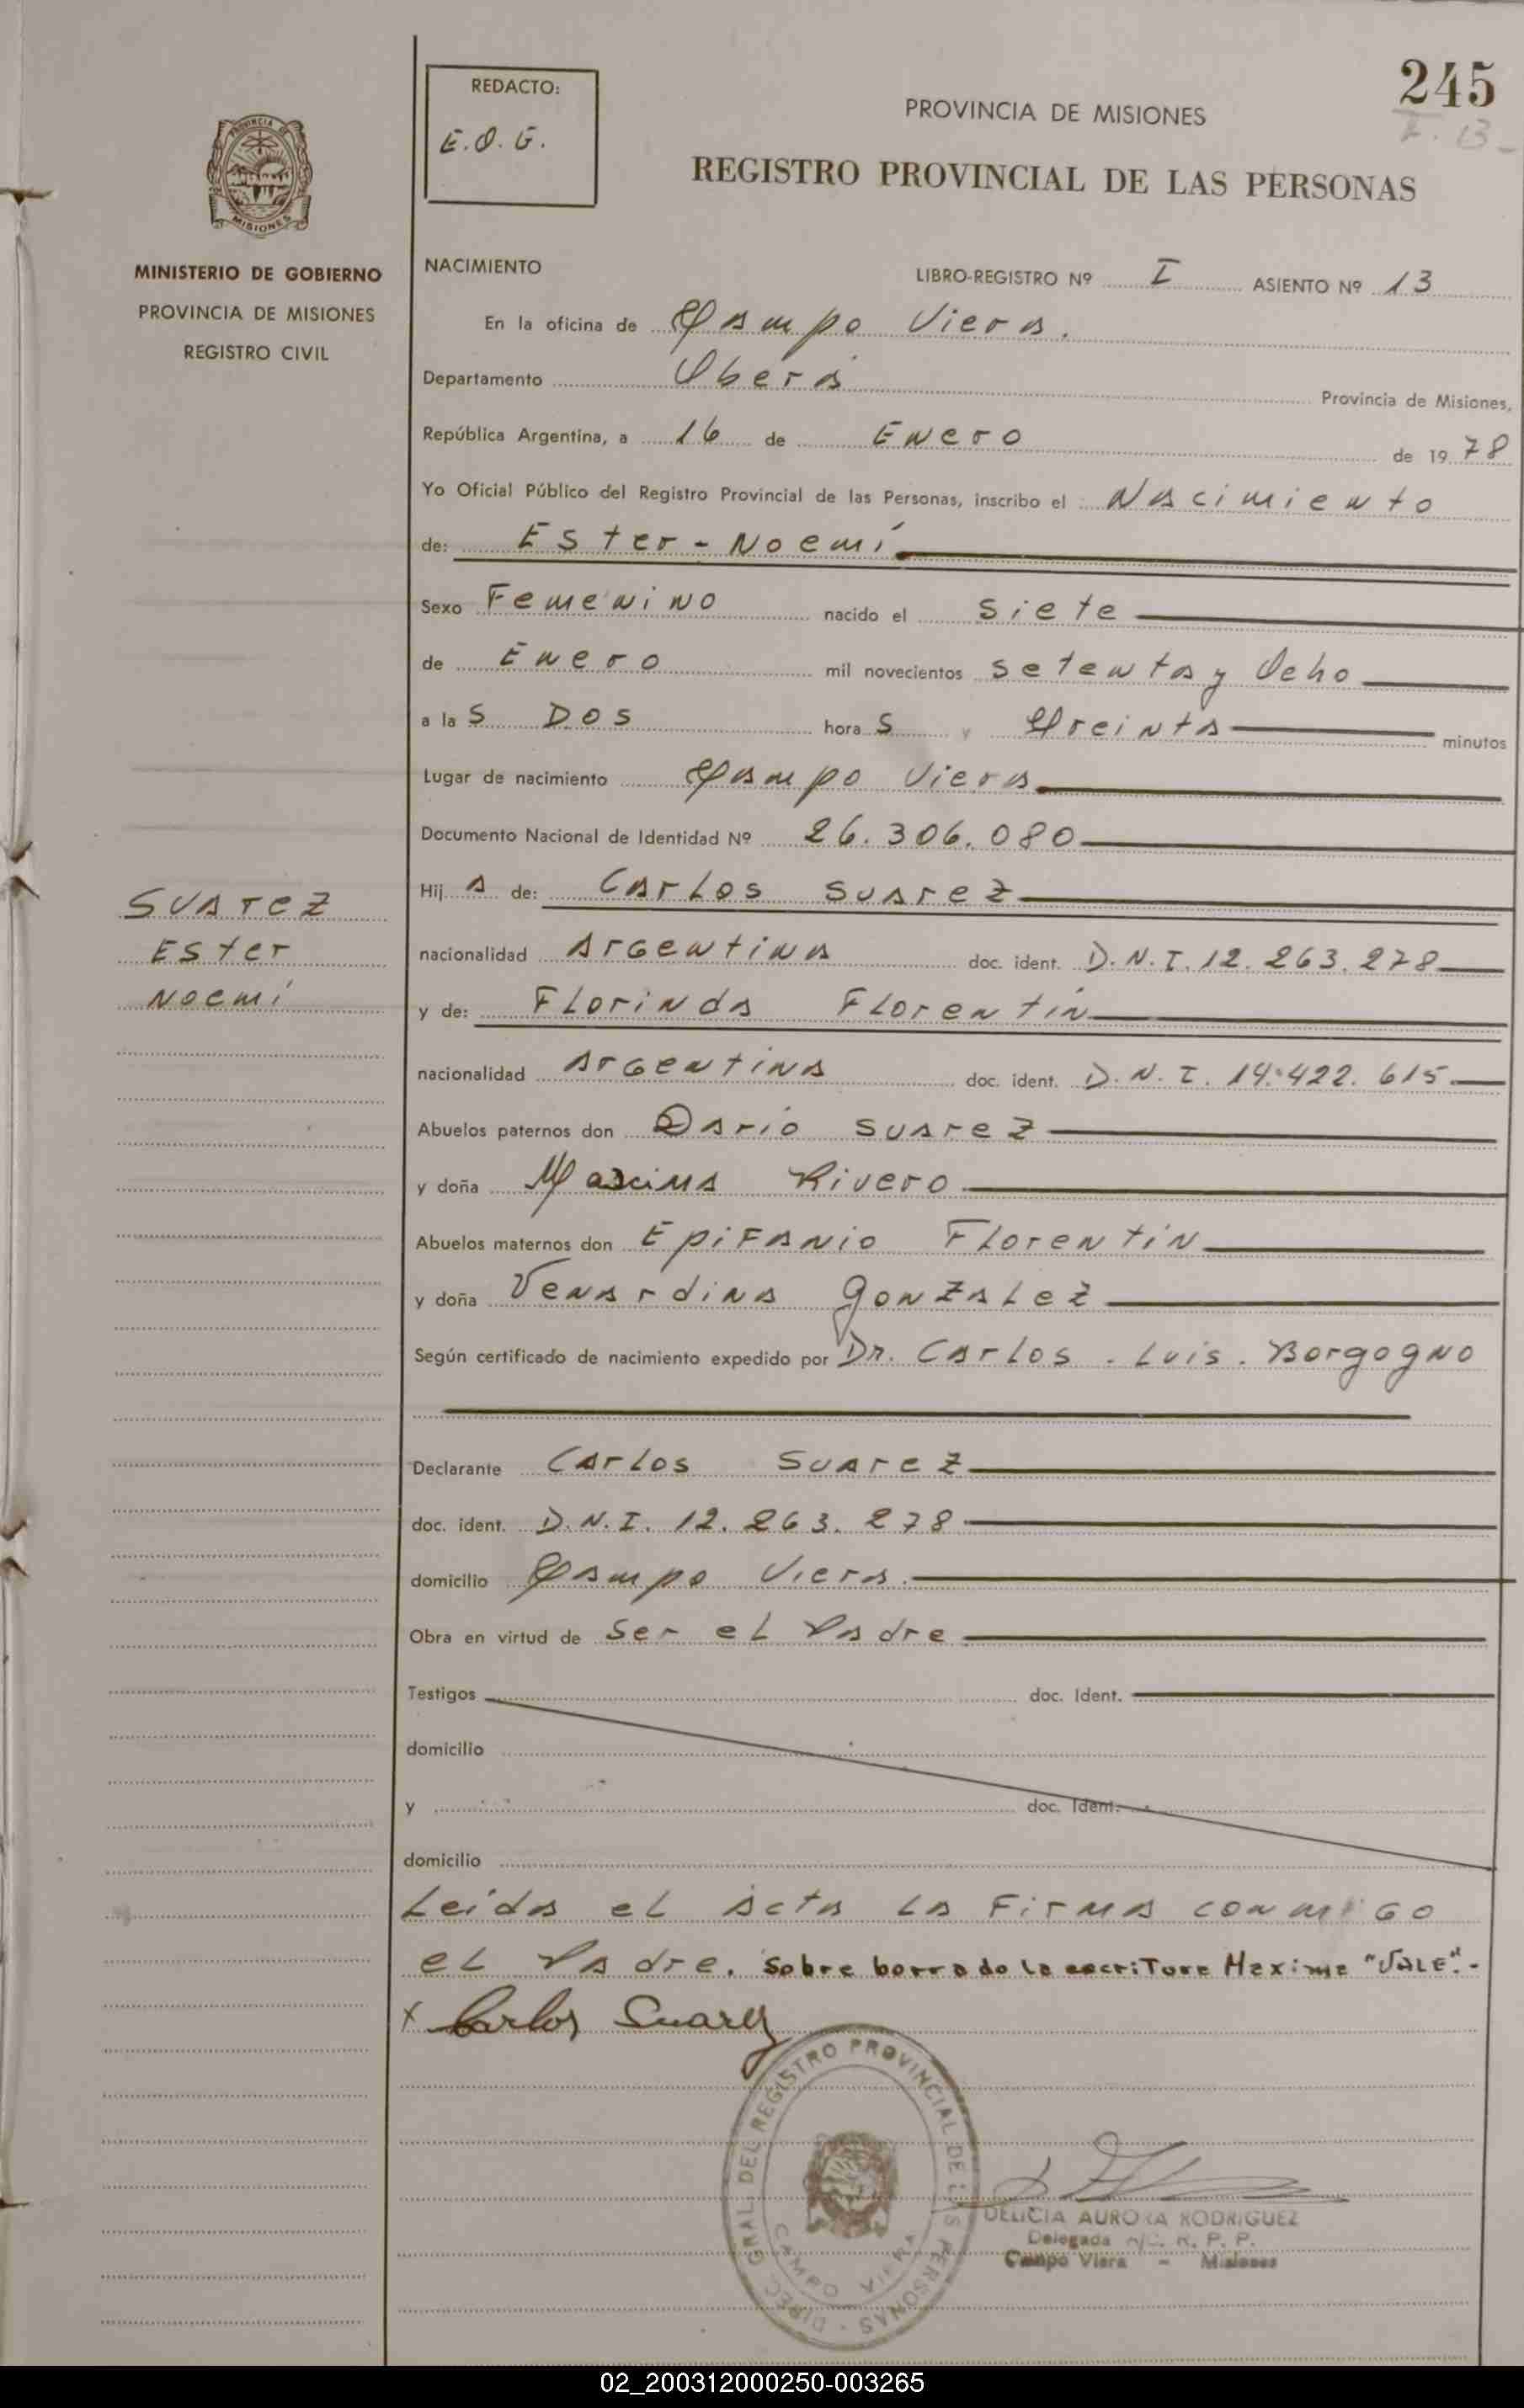 245
I. 13-
REDACTO:
E.O.G.
PROVINCIA DE MISIONES
REGISTRO PROVINCIAL DE LAS PERSONAS
PROVINCIA DE
MISIONES
MINISTERIO DE GOBIERNO
PROVINCIA DE MISIONES
REGISTRO CIVIL
NACIMIENTO
LIBRO-REGISTRO Nº I ASIENTO Nº 13
En la oficina de Campo Viera.
Departamento Oberá Provincia de Misiones,
República Argentina, a 16 de Enero de 1978
Yo Oficial Público del Registro Provincial de las Personas, inscribo el Nacimiento
de: Ester-Noemí
Sexo Femenino nacido el Siete
de Enero mil novecientos setenta y Ocho
a las Dos horas y Treinta minutos
Lugar de nacimiento Campo Viera
Documento Nacional de Identidad Nº 26.306.080
Hija de: Carlos Suarez
SUArez
Ester
Noemí
nacionalidad Argentina doc. ident. D.N.I. 12.263.278
y de: Florinda Florentín
nacionalidad Argentina doc. ident. D.N.I. 14.422.615
Abuelos paternos don Darío Suarez
y doña Maxima Rivero
Abuelos maternos don Epifanio Florentín
y doña Venardina Gonzalez
Según certificado de nacimiento expedido por Dr. Carlos. Luis. Borgogno
Declarante Carlos Suarez
doc. ident. D.N.I. 12.263.278
domicilio Campo Viera.
Obra en virtud de Ser el Padre
Testigos doc. Ident.
domicilio
y doc. Ident.
domicilio
Leída el Acta La Firma conmigo
el Padre. Sobre borrado la escritura Maxima "VALE".-
x Carlos Suarez
DIREC. GRAL. DEL REGISTRO PROVINCIAL DE LAS PERSONAS
CAMPO VIERA
DELICIA AURORA RODRIGUEZ
Delegada R. P. P.
Campo Viera - Misiones
02_200312000250-003265